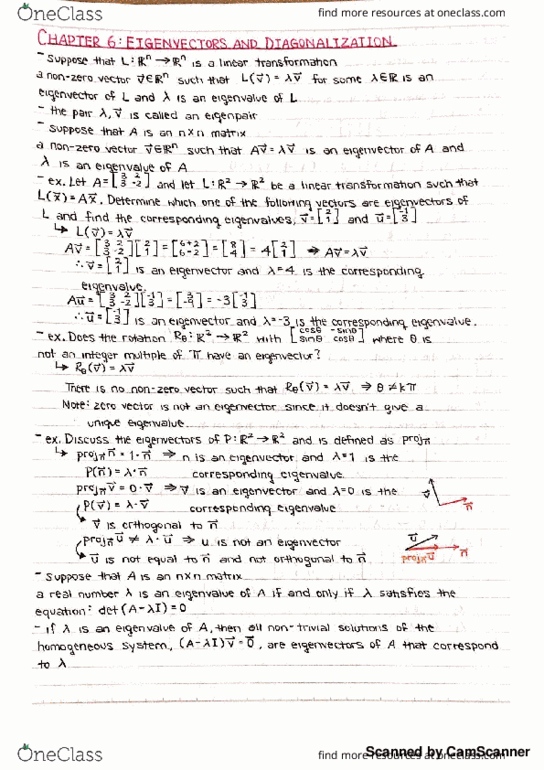 OneClass
find more resources at oneclass.com
CHAPTER 6: EIGENVECTORS AND DIAGONALIZATION
- Suppose that L: ℝⁿ → ℝⁿ is a linear transformation
a non-zero vector v⃗ ∈ ℝⁿ such that L(v⃗) = λv⃗ for some λ∈ℝ is an
eigenvector of L and λ is an eigenvalue of L
- the pair λ, v⃗ is called an eigenpair
- Suppose that A is an n×n matrix
a non-zero vector v⃗ ∈ ℝⁿ such that Av⃗ = λv⃗ is an eigenvector of A and
λ is an eigenvalue of A
- ex. Let A = [3 2; 3 -2] and let L: ℝ² → ℝ² be a linear transformation such that
L(x⃗) = Ax⃗. Determine which one of the following vectors are eigenvectors of
L and find the corresponding eigenvalues, v⃗ = [2; 1] and u⃗ = [-1; 3]
↳ L(v⃗) = λv⃗
Av⃗ = [3 2; 3 -2][2; 1] = [6+2; 6-2] = [8; 4] = 4[2; 1] ⇒ Av⃗ = λv⃗
∴ v⃗ = [2; 1] is an eigenvector and λ=4 is the corresponding
eigenvalue.
Au⃗ = [3 2; 3 -2][-1; 3] = [3; -9] = -3[-1; 3]
∴ u⃗ = [-1; 3] is an eigenvector and λ=-3 is the corresponding eigenvalue.
- ex. Does the rotation Rθ: ℝ² → ℝ² with [cosθ -sinθ; sinθ cosθ] where θ is
not an integer multiple of π have an eigenvector?
↳ Rθ(v⃗) = λv⃗
There is no non-zero vector such that Rθ(v⃗) = λv⃗ ⇒ θ ≠ kπ
Note: zero vector is not an eigenvector since it doesn't give a
unique eigenvalue
- ex. Discuss the eigenvectors of P: ℝ² → ℝ² and is defined as projn⃗
↳ projn⃗ n⃗ = 1·n⃗ ⇒ n is an eigenvector and λ=1 is the
P(n⃗) = λ·n⃗ corresponding eigenvalue
projn⃗ v⃗ = 0·v⃗ ⇒ v⃗ is an eigenvector and λ=0 is the
P(v⃗) = λ·v⃗ corresponding eigenvalue
v⃗ n⃗
v⃗ is orthogonal to n⃗
projn⃗ u⃗ ≠ λ·u⃗ ⇒ u is not an eigenvector
u⃗ is not equal to n⃗ and not orthogonal to n⃗
u⃗ n⃗
projn⃗ u⃗
- Suppose that A is an n×n matrix
a real number λ is an eigenvalue of A if and only if λ satisfies the
equation: det(A-λI)=0
- If λ is an eigenvalue of A, then all non-trivial solutions of the
homogeneous system, (A-λI)v⃗ = 0⃗, are eigenvectors of A that correspond
to λ
OneClass
find more resources at oneclass.com
Scanned by CamScanner